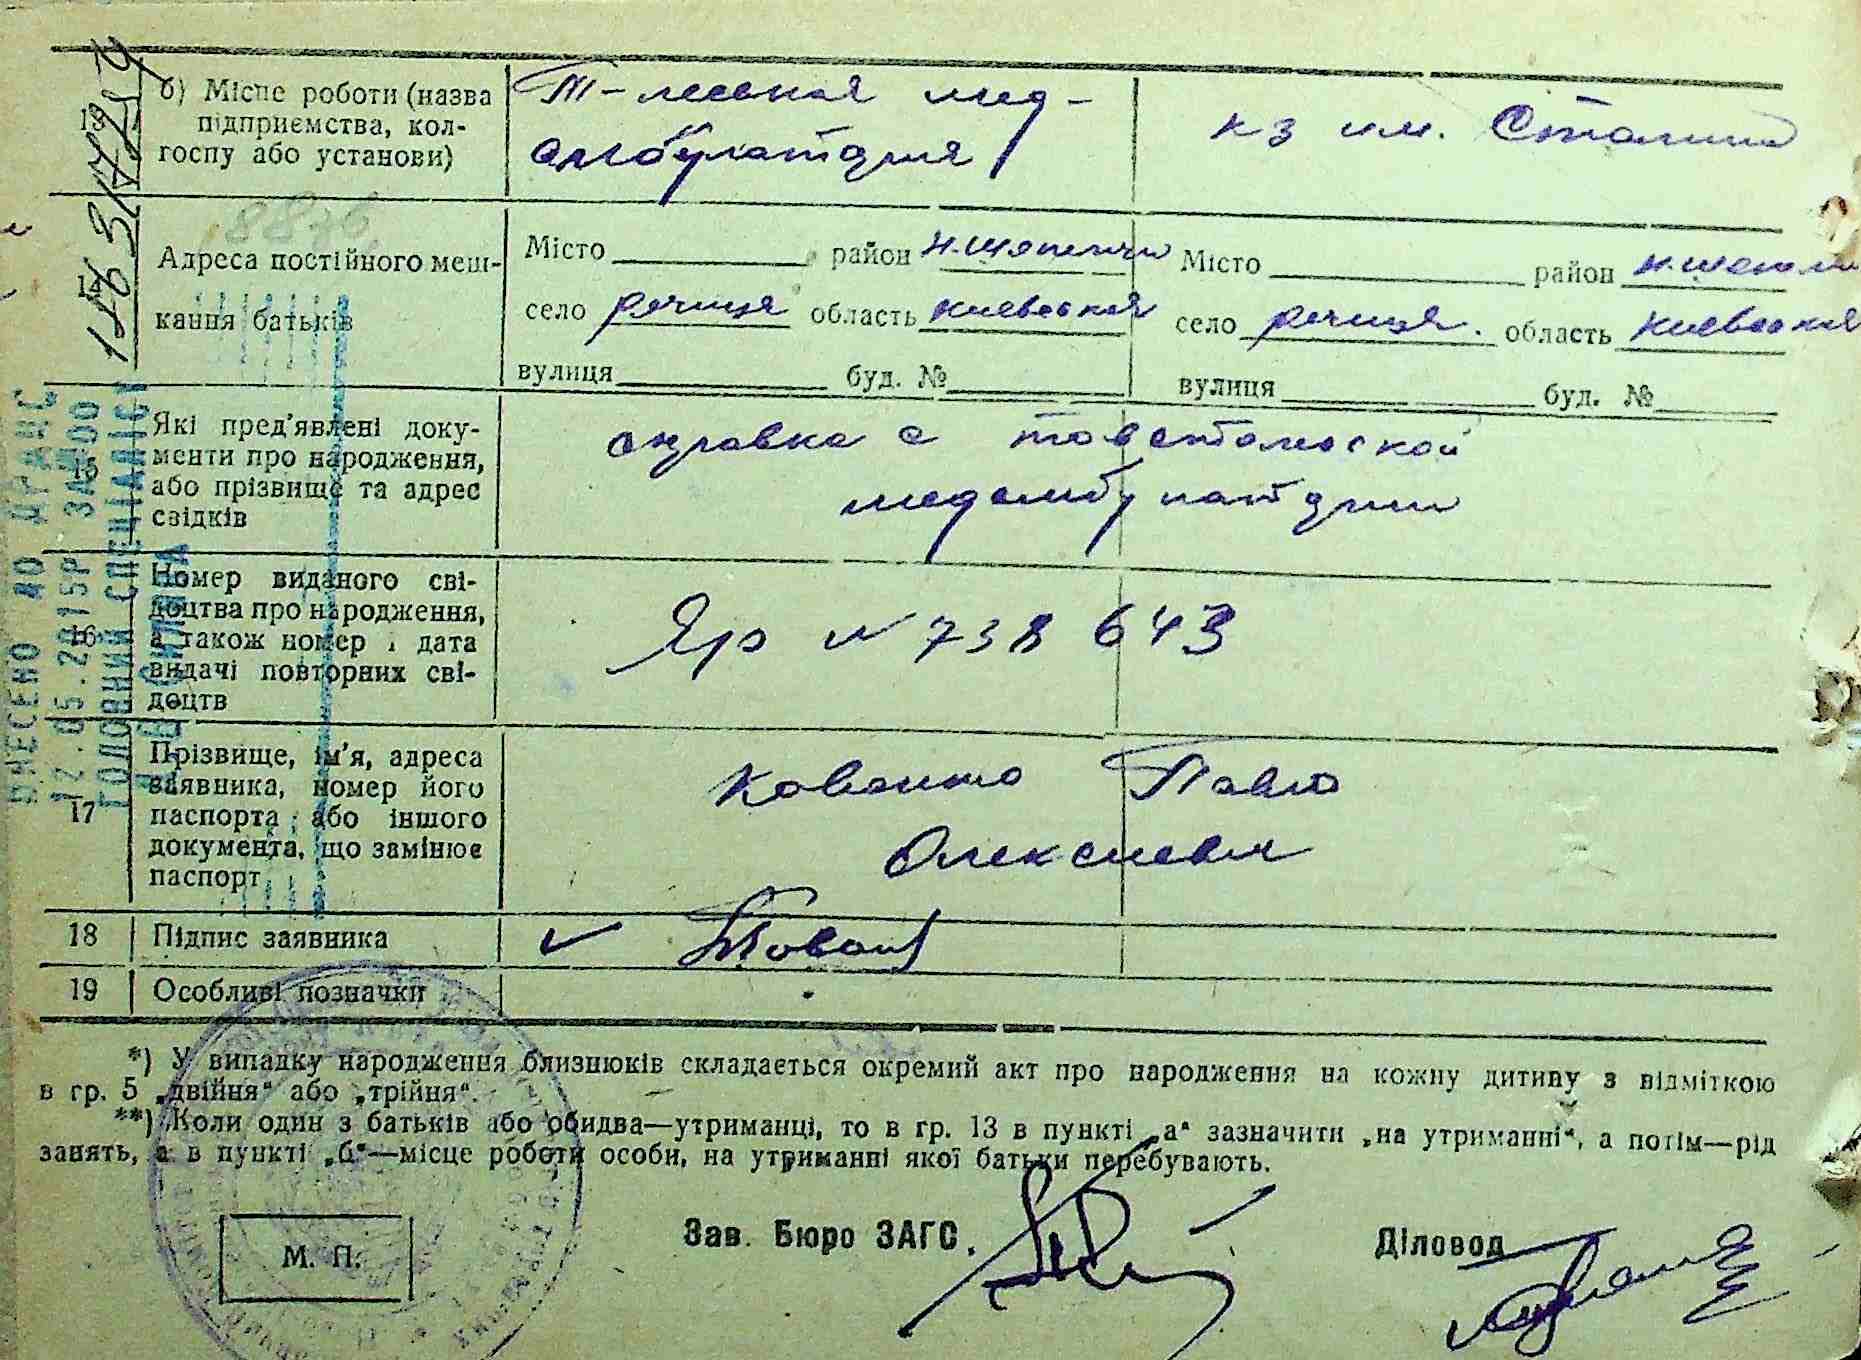 13
б) Місце роботи (назва
підприємства, кол-
госпу або установи)
Т-лесьная мед-
амбулатория
кз им. Сталина
14
Адреса постійного меш-
кання батьків
Місто район
село речица область киевская
вулиця буд. №
Місто район
село речица. область киевская
вулиця буд. №
15
Які пред'явлені доку-
менти про народження,
або прізвище та адрес
свідків
справка с товстолеской
медамбулатории
16
Номер виданого сві-
доцтва про народження,
а також номер і дата
видачі повторних сві-
доцтв
Яр № 738 643
17
Прізвище, ім'я, адреса
заявника, номер його
паспорта або іншого
документа, що замінює
паспорт
Павло
Олексиевич
18 Підпис заявника
19 Особливі позначки
*) У випадку народження близнюків складається окремий акт про народження на кожну дитину з відміткою
в гр. 5 „двійня“ або „трійня“.
**) Коли один з батьків або обидва—утриманці, то в гр. 13 в пункті „а“ зазначити „на утриманні“, а потім—рід
занять, а в пункті „б“—місце роботи особи, на утриманні якої батьки перебувають.
М. П.
Зав. Бюро ЗАГС.
Діловод
ВНЕСЕНО ДО ДРАЦС
12.05.2015Р ЗА №00
ГОЛОВНИЙ СПЕЦІАЛІСТ